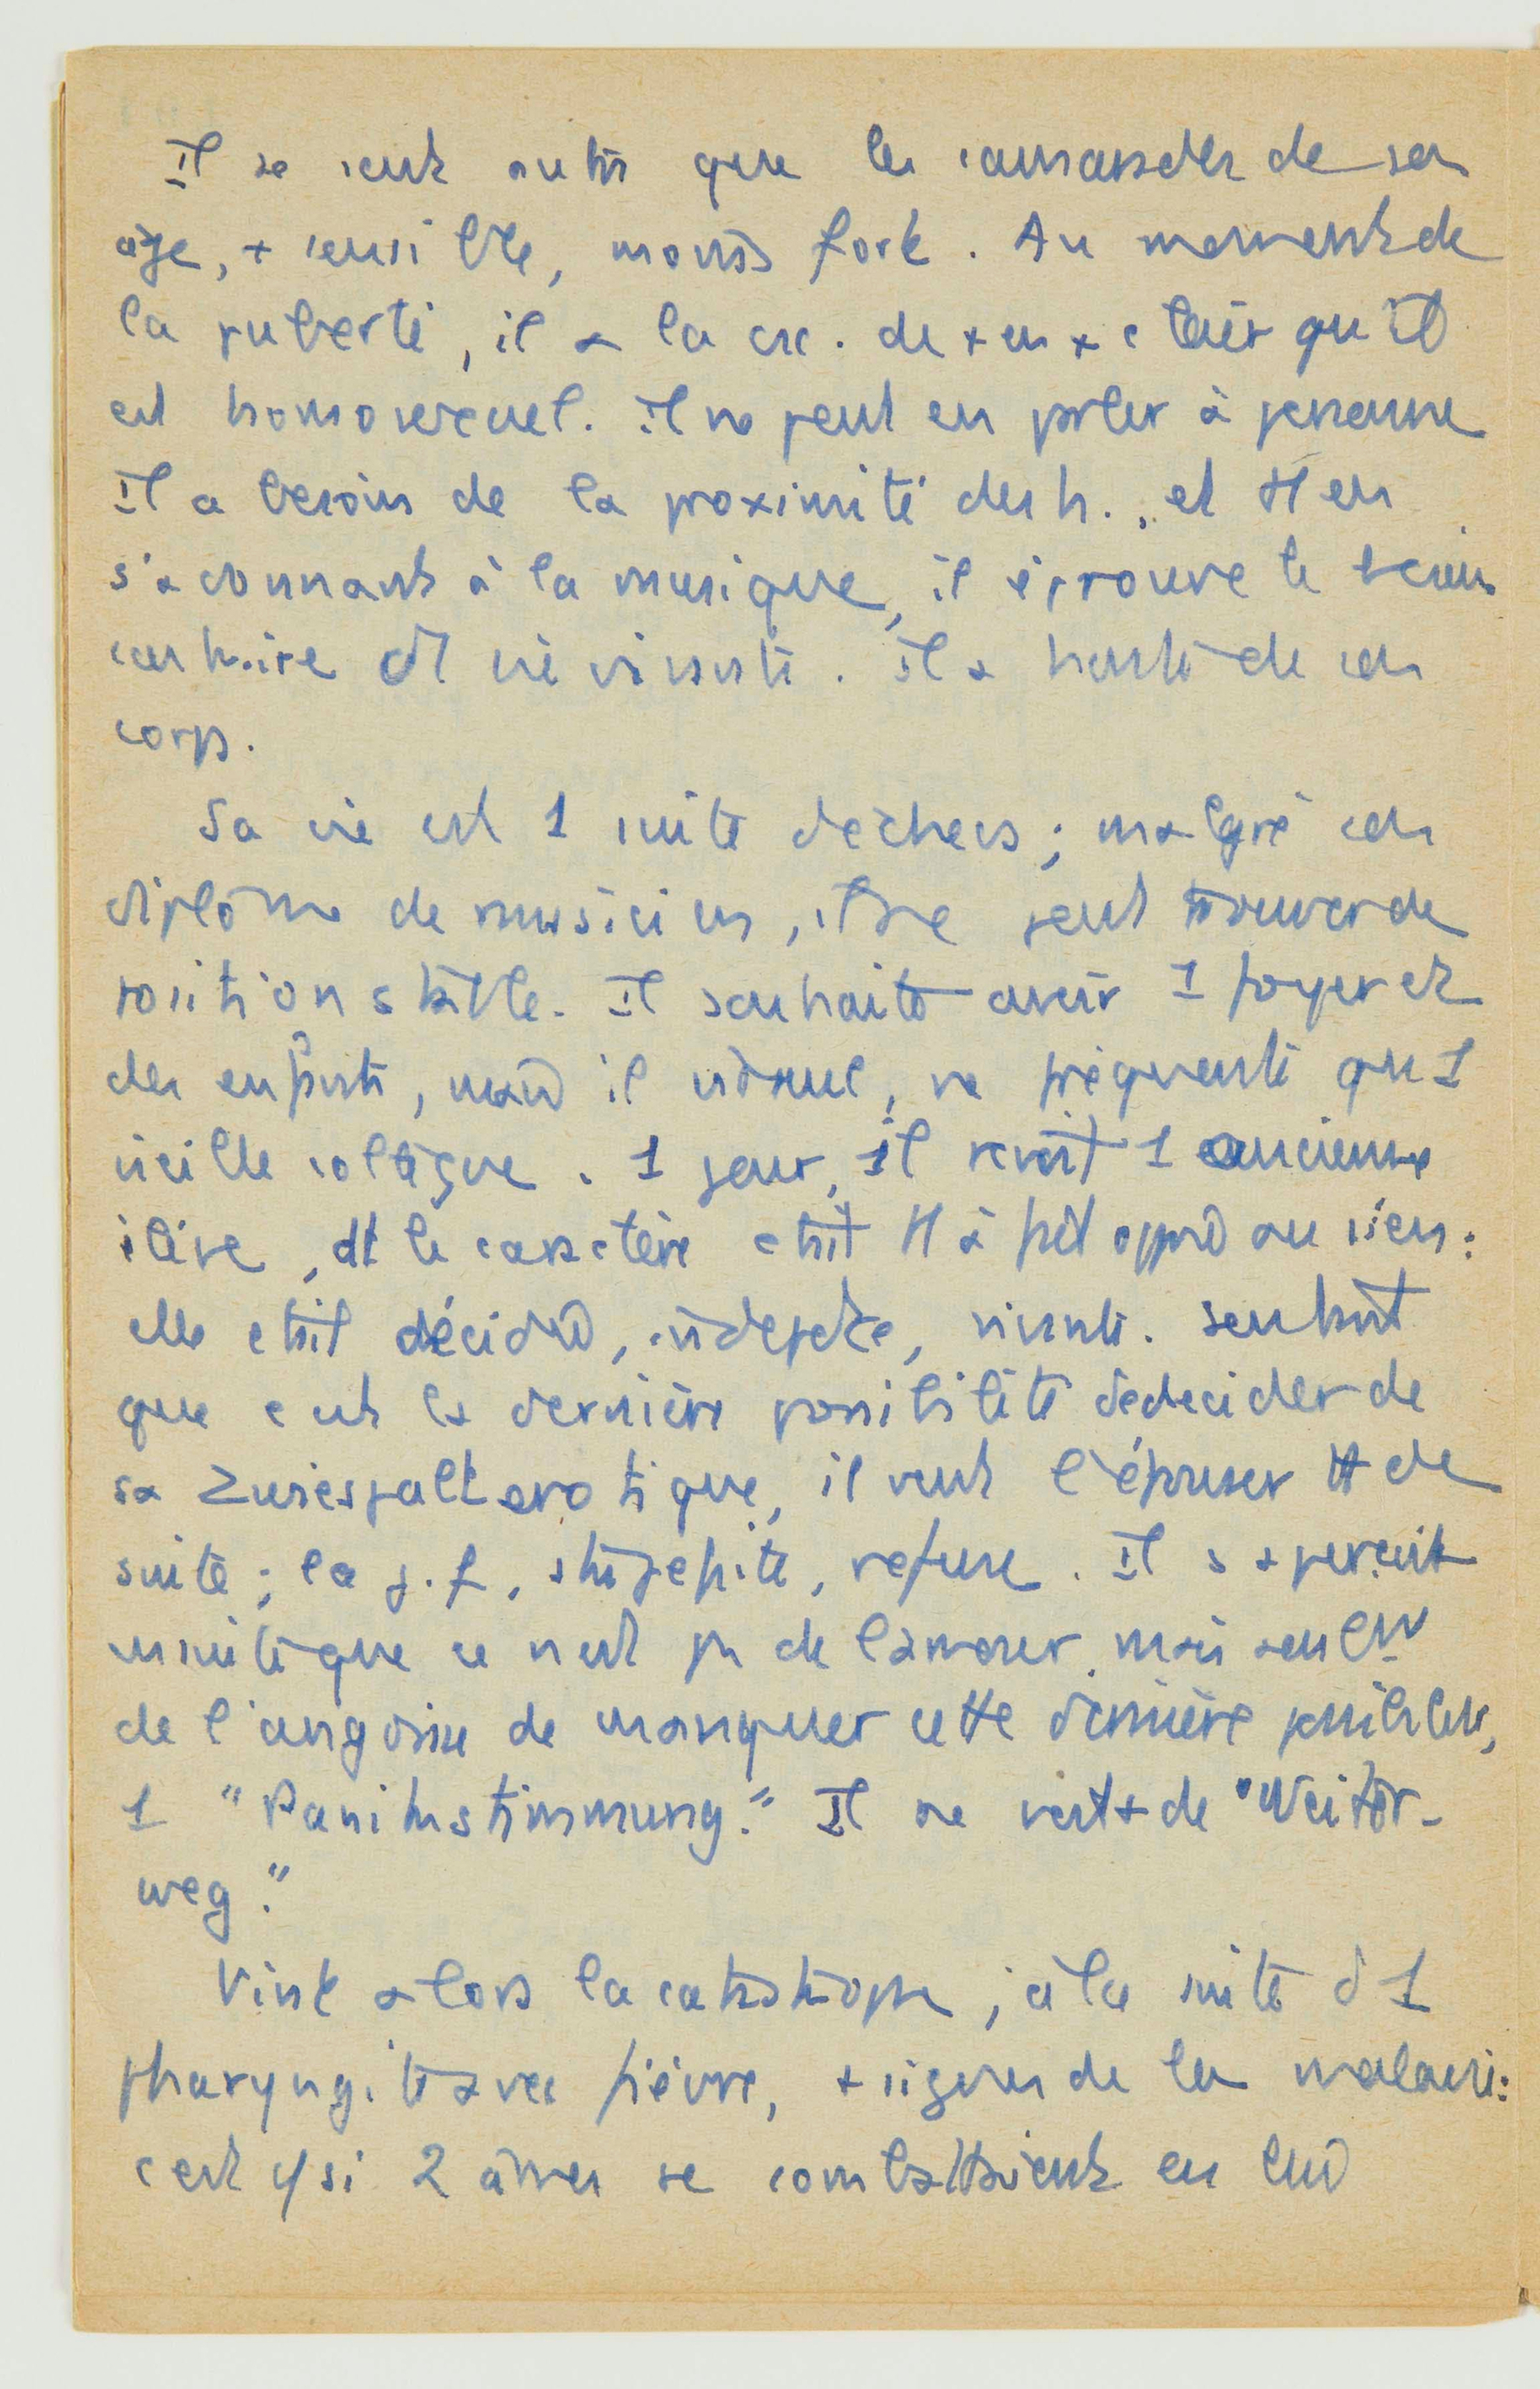 Il se sent autre que les camarades de son
âge, + sensible, moins fort. Au moment de
la puberté, il a la csc. de + en + claire qu'il
est homosexuel. Il ne peut en parler à personne
Il a besoin de la proximité des h., et tt en
s'adonnant à la musique, il éprouve le besoin
contraire d1 vie . Il a honte de son
corps.
Sa vie est 1 suite d'échecs ; malgré son
diplôme de musicien, il ne peut trouver de
position stable. Il souhaite avoir 1 foyer et
des enfants, mais il , ne fréquente qu'1
vieille collègue. 1 jour, il revoit 1 ancienne
élève, dt le caractère était tt à fait opposé au sien :
elle était décidée, indépdte, vivante. Sentant
que c'est la dernière possibilité de décider de
sa Zwiespalt erotique, il veut l'épouser tt de
suite ; la j. f., stupéfaite, refuse. Il s'aperçoit
ensuite que ce n'est pas de l'amour, mais seulemt
de l'angoisse de manquer cette dernière possibilité,
1 "Panikstimmung." Il ne voit + de "Weiter-
weg."
Vint alors la catastrophe ; à la suite d'1
pharyngite avec fièvre, + signes de la malaria :
c'est c/ si 2 âmes se combattaient en lui